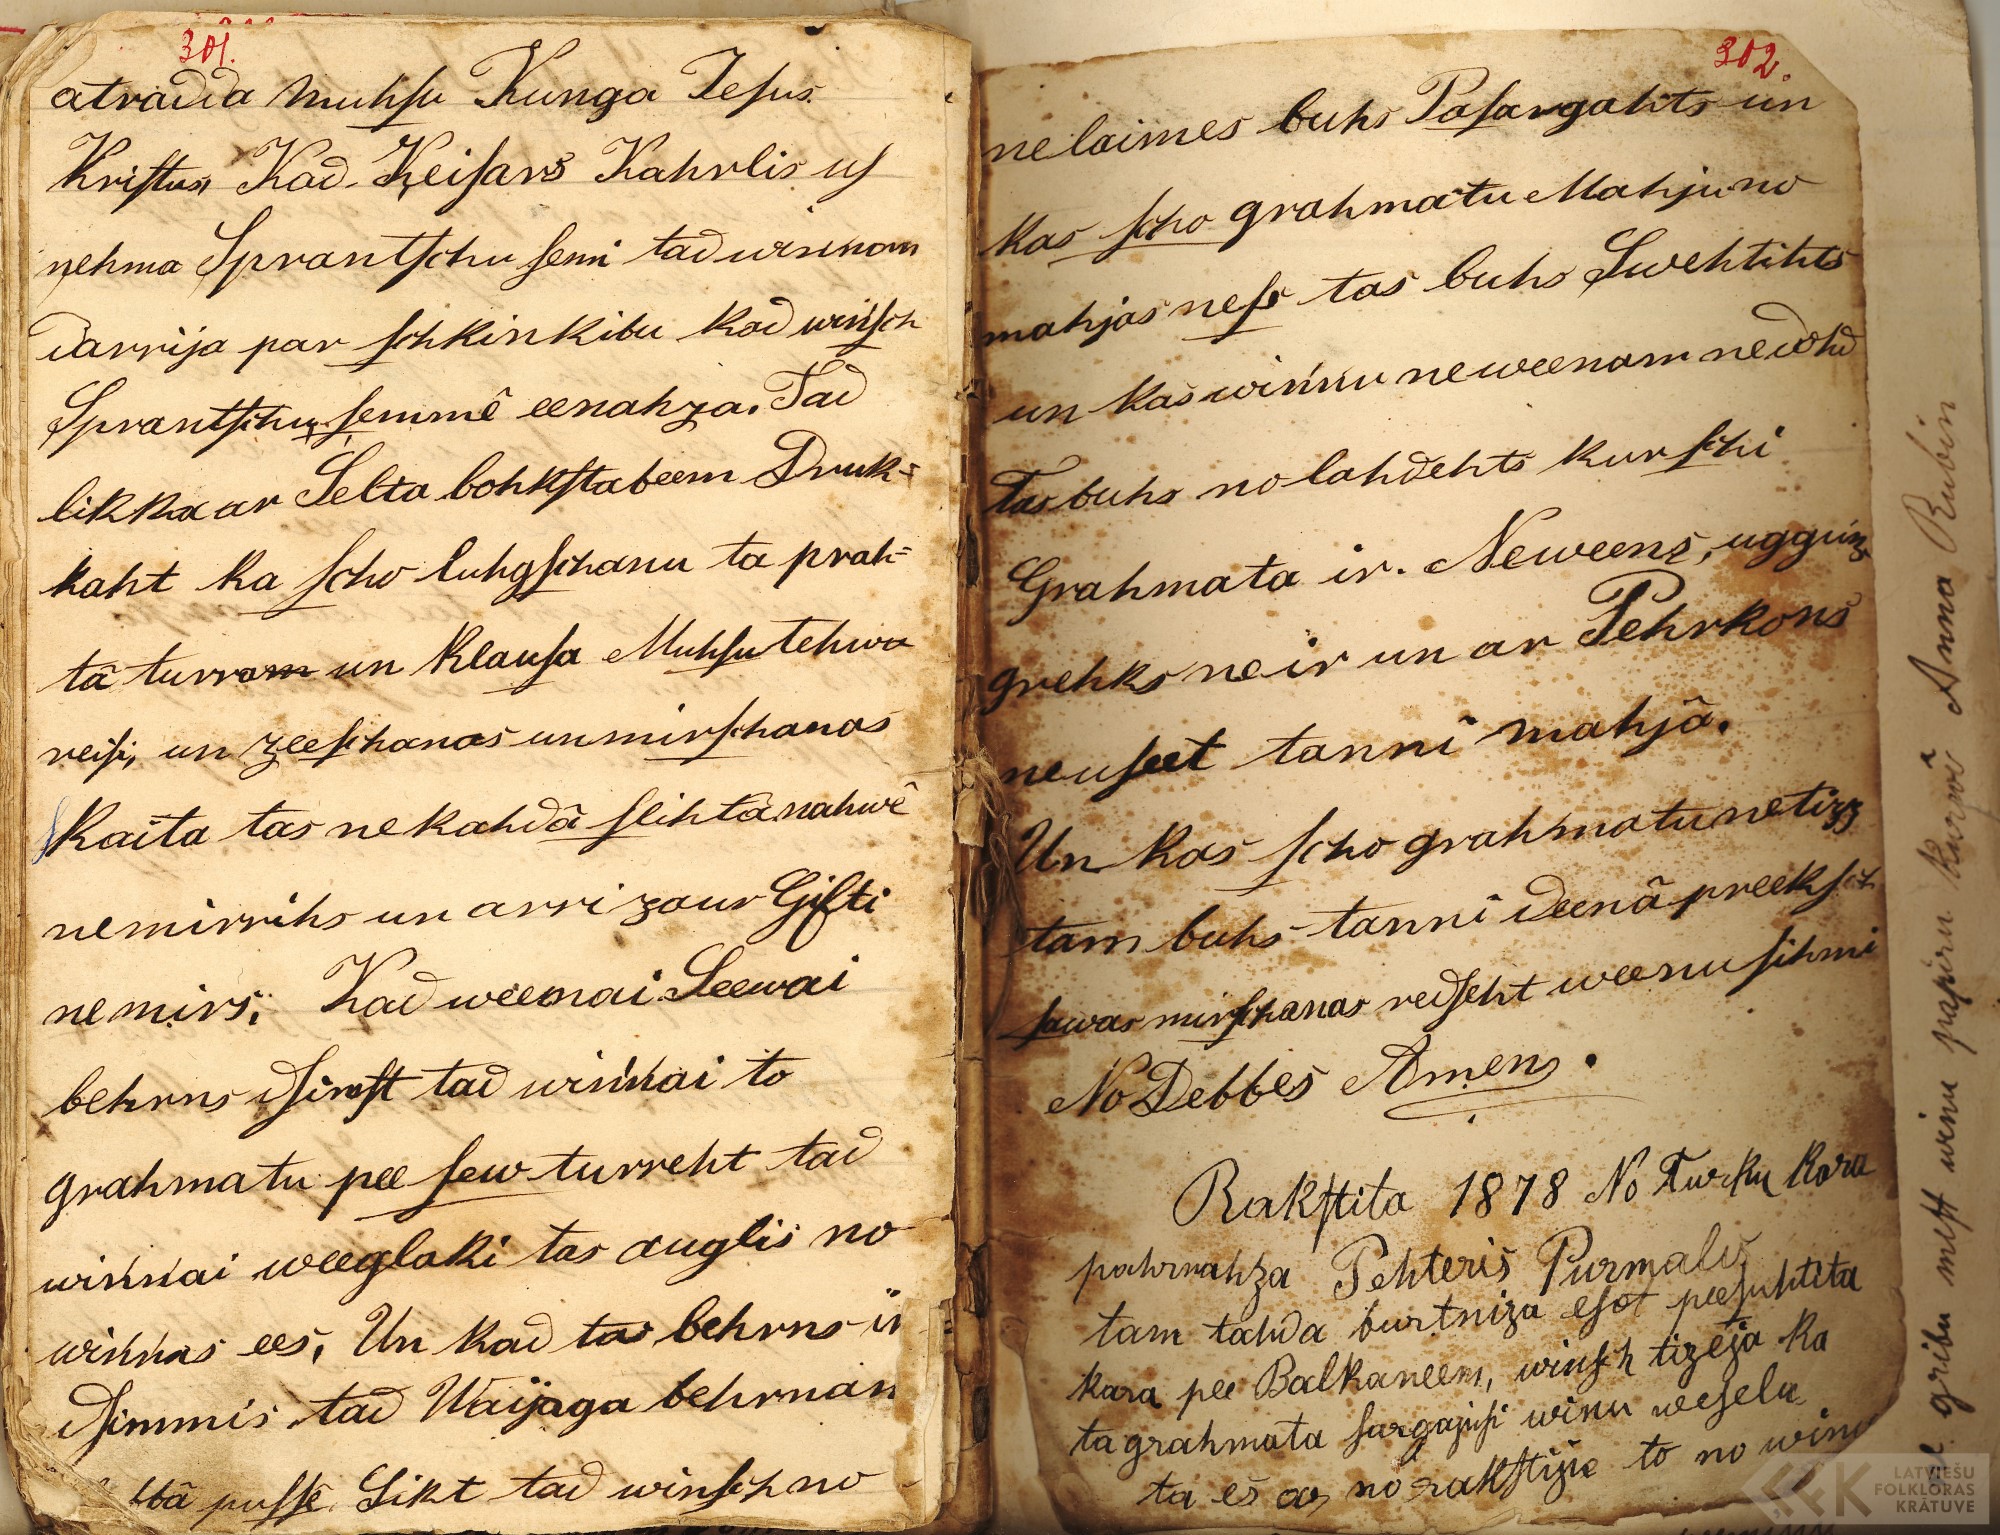 301.
atradda muhsu Kunga Jesus
Kristus, Kad Keisars Kahrlis us
nehma Sprantschu semi tad winnam
darrija par schkinkibu kad winsch
Sprantschu semmê eenahza. Tad
likka ar Selta bohkstabeem Druk=
kaht ka scho luhgschanu ta prah=
tâ turram un klausa Muhsu tehwu
reisi, un zeeschanas un mirschanas
skaita tas ne kahdâ slihtâ nahwê
nemirrihs un arri zaur Gifti
nemirs; Kad weenai Seewai
behrns dsimst tad winnai to
grahmatu pee sew turreht tad
winnai weeglaki tas auglis no
winnas ees, Un kad tas behrns ir
dsimmis tad Waijaga behrnam
pussê Likt tad winsch no
302.
nelaimes buhs Pasargahts un
kas scho grahmatu Mahju no
mahjas ness tas buhs Swehtihts
un kas winnu neweenam nedohd
Tas buhs nolahdehts kur schi
Grahmata ir. Neweens, ugguns
grehks ne ir un ar Pehrkons
neuseet tanni mahjâ.
Un kas scho grahmatu netizz
tam buhs tanni deenâ preeksch
sawas mirschanas redseht weenu sihmi
No Debbes Amens.
Rakstita 1878 No Turku kara
pahrnahza Pehteris Purmalis,
tam tahda burtniza esot peesuhtita
kara pee Balkaneem, winsch tizeja ka
ta grahmata sargajusi winu weselu
ta es ar norakstiju to no winu
gribu mest winu papiru kurwî Anna Rubin
LATVIEŠU
FOLKLORAS
KRĀTUVE